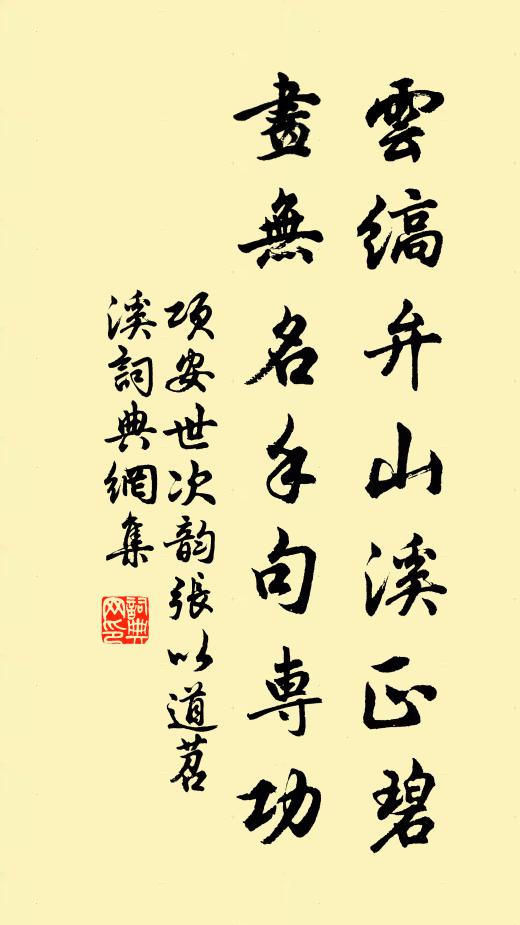 雲縞弁山溪正碧
畫無名手句専功
項安世次韵張以道苕
溪詞典網集
詞典
网印